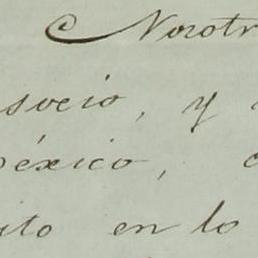 Nosotr
socio, y
México,
ito en lo